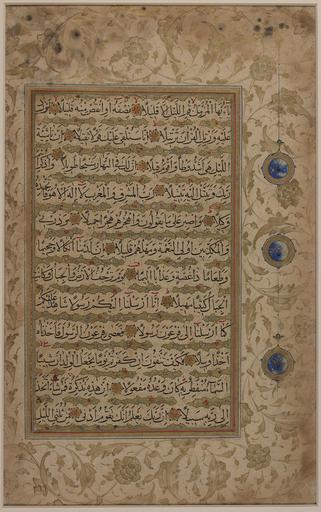 يَا أَيُّهَا الْمُزَّمِّلُ قُمِ اللَّيْلَ إِلَّا قَلِيلًا نِصْفَهُ أَوِ انْقُصْ مِنْهُ قَلِيلًا أَوْ زِدْ
عَلَيْهِ وَرَتِّلِ الْقُرْآنَ تَرْتِيلًا إِنَّا سَنُلْقِي عَلَيْكَ قَوْلًا ثَقِيلًا إِنَّ نَاشِئَةَ
اللَّيْلِ هِيَ أَشَدُّ وَطْئًا وَأَقْوَمُ قِيلًا إِنَّ لَكَ فِي النَّهَارِ سَبْحًا طَوِيلًا وَاذْكُرِ اسْمَ
رَبِّكَ وَتَبَتَّلْ إِلَيْهِ تَبْتِيلًا رَبُّ الْمَشْرِقِ وَالْمَغْرِبِ لَا إِلَهَ إِلَّا هُوَ فَاتَّخِذْهُ
وَكِيلًا وَاصْبِرْ عَلَى مَا يَقُولُونَ وَاهْجُرْهُمْ هَجْرًا جَمِيلًا وَذَرْنِي
وَالْمُكَذِّبِينَ أُولِي النَّعْمَةِ وَمَهِّلْهُمْ قَلِيلًا إِنَّ لَدَيْنَا أَنْكَالًا وَجَحِيمًا
وَطَعَامًا ذَا غُصَّةٍ وَعَذَابًا أَلِيمًا يَوْمَ تَرْجُفُ الْأَرْضُ وَالْجِبَالُ وَكَانَتِ
الْجِبَالُ كَثِيبًا مَهِيلًا إِنَّا أَرْسَلْنَا إِلَيْكُمْ رَسُولًا شَاهِدًا عَلَيْكُمْ
كَمَا أَرْسَلْنَا إِلَى فِرْعَوْنَ رَسُولًا فَعَصَى فِرْعَوْنُ الرَّسُولَ فَأَخَذْنَاهُ
أَخْذًا وَبِيلًا فَكَيْفَ تَتَّقُونَ إِنْ كَفَرْتُمْ يَوْمًا يَجْعَلُ الْوِلْدَانَ شِيبًا
السَّمَاءُ مُنْفَطِرٌ بِهِ كَانَ وَعْدُهُ مَفْعُولًا إِنَّ هَذِهِ تَذْكِرَةٌ فَمَنْ شَاءَ اتَّخَذَ
إِلَى رَبِّهِ سَبِيلًا إِنَّ رَبَّكَ يَعْلَمُ أَنَّكَ تَقُومُ أَدْنَى مِنْ ثُلُثَيِ اللَّيْلِ